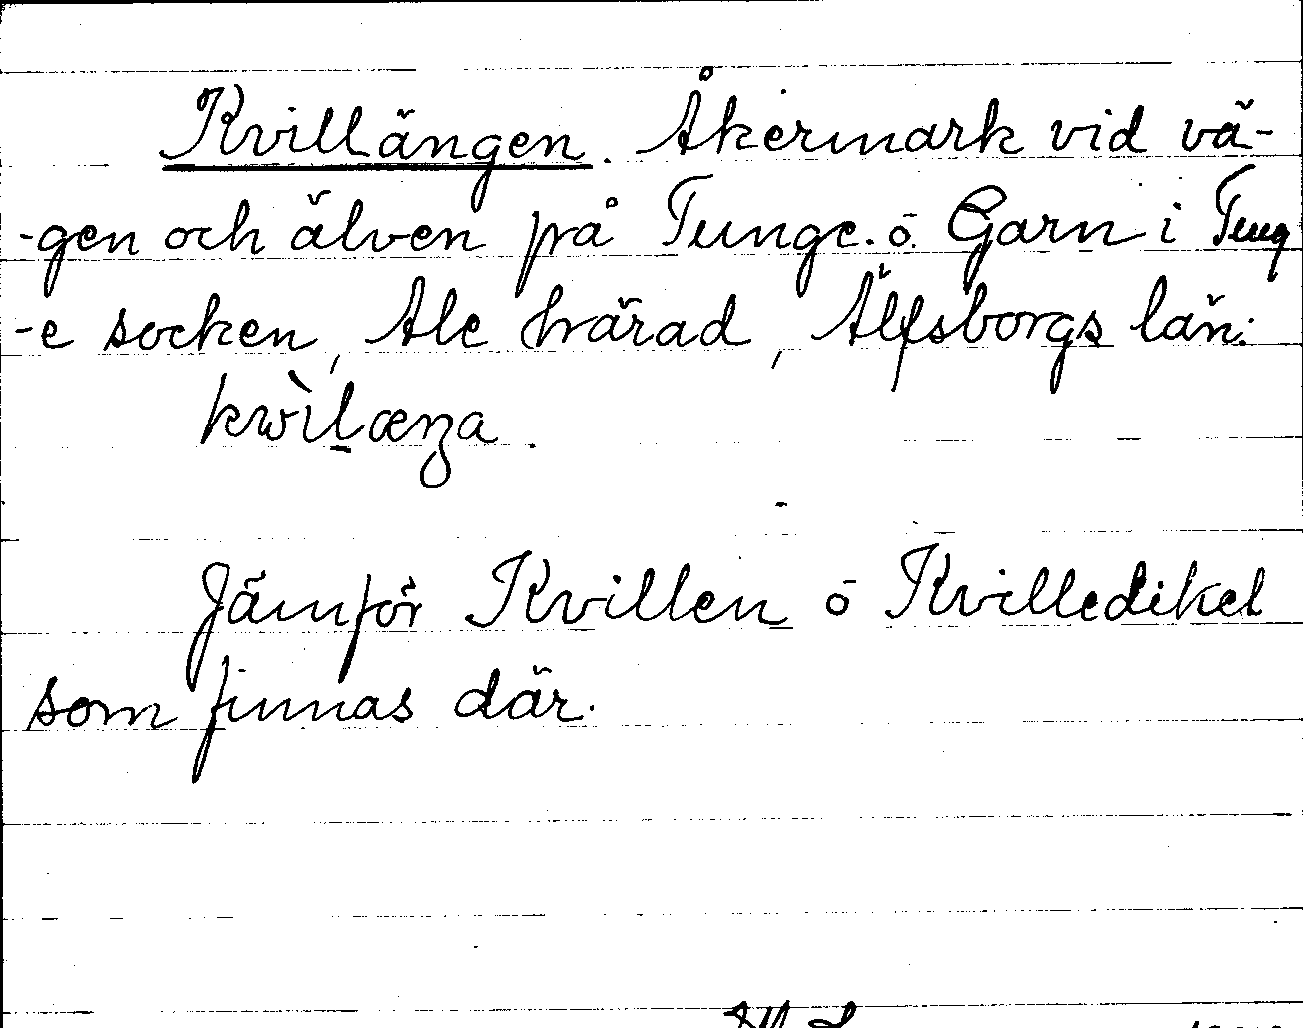 Kvillängen. Åkermark vid vä-
-gen och älven på Tunge. o. Garn i Tung
-e socken, Ale härad, Älfsborgs län:
kwìlæŋa.
Jämför Kvillen o Kvillediket
som finnas där.